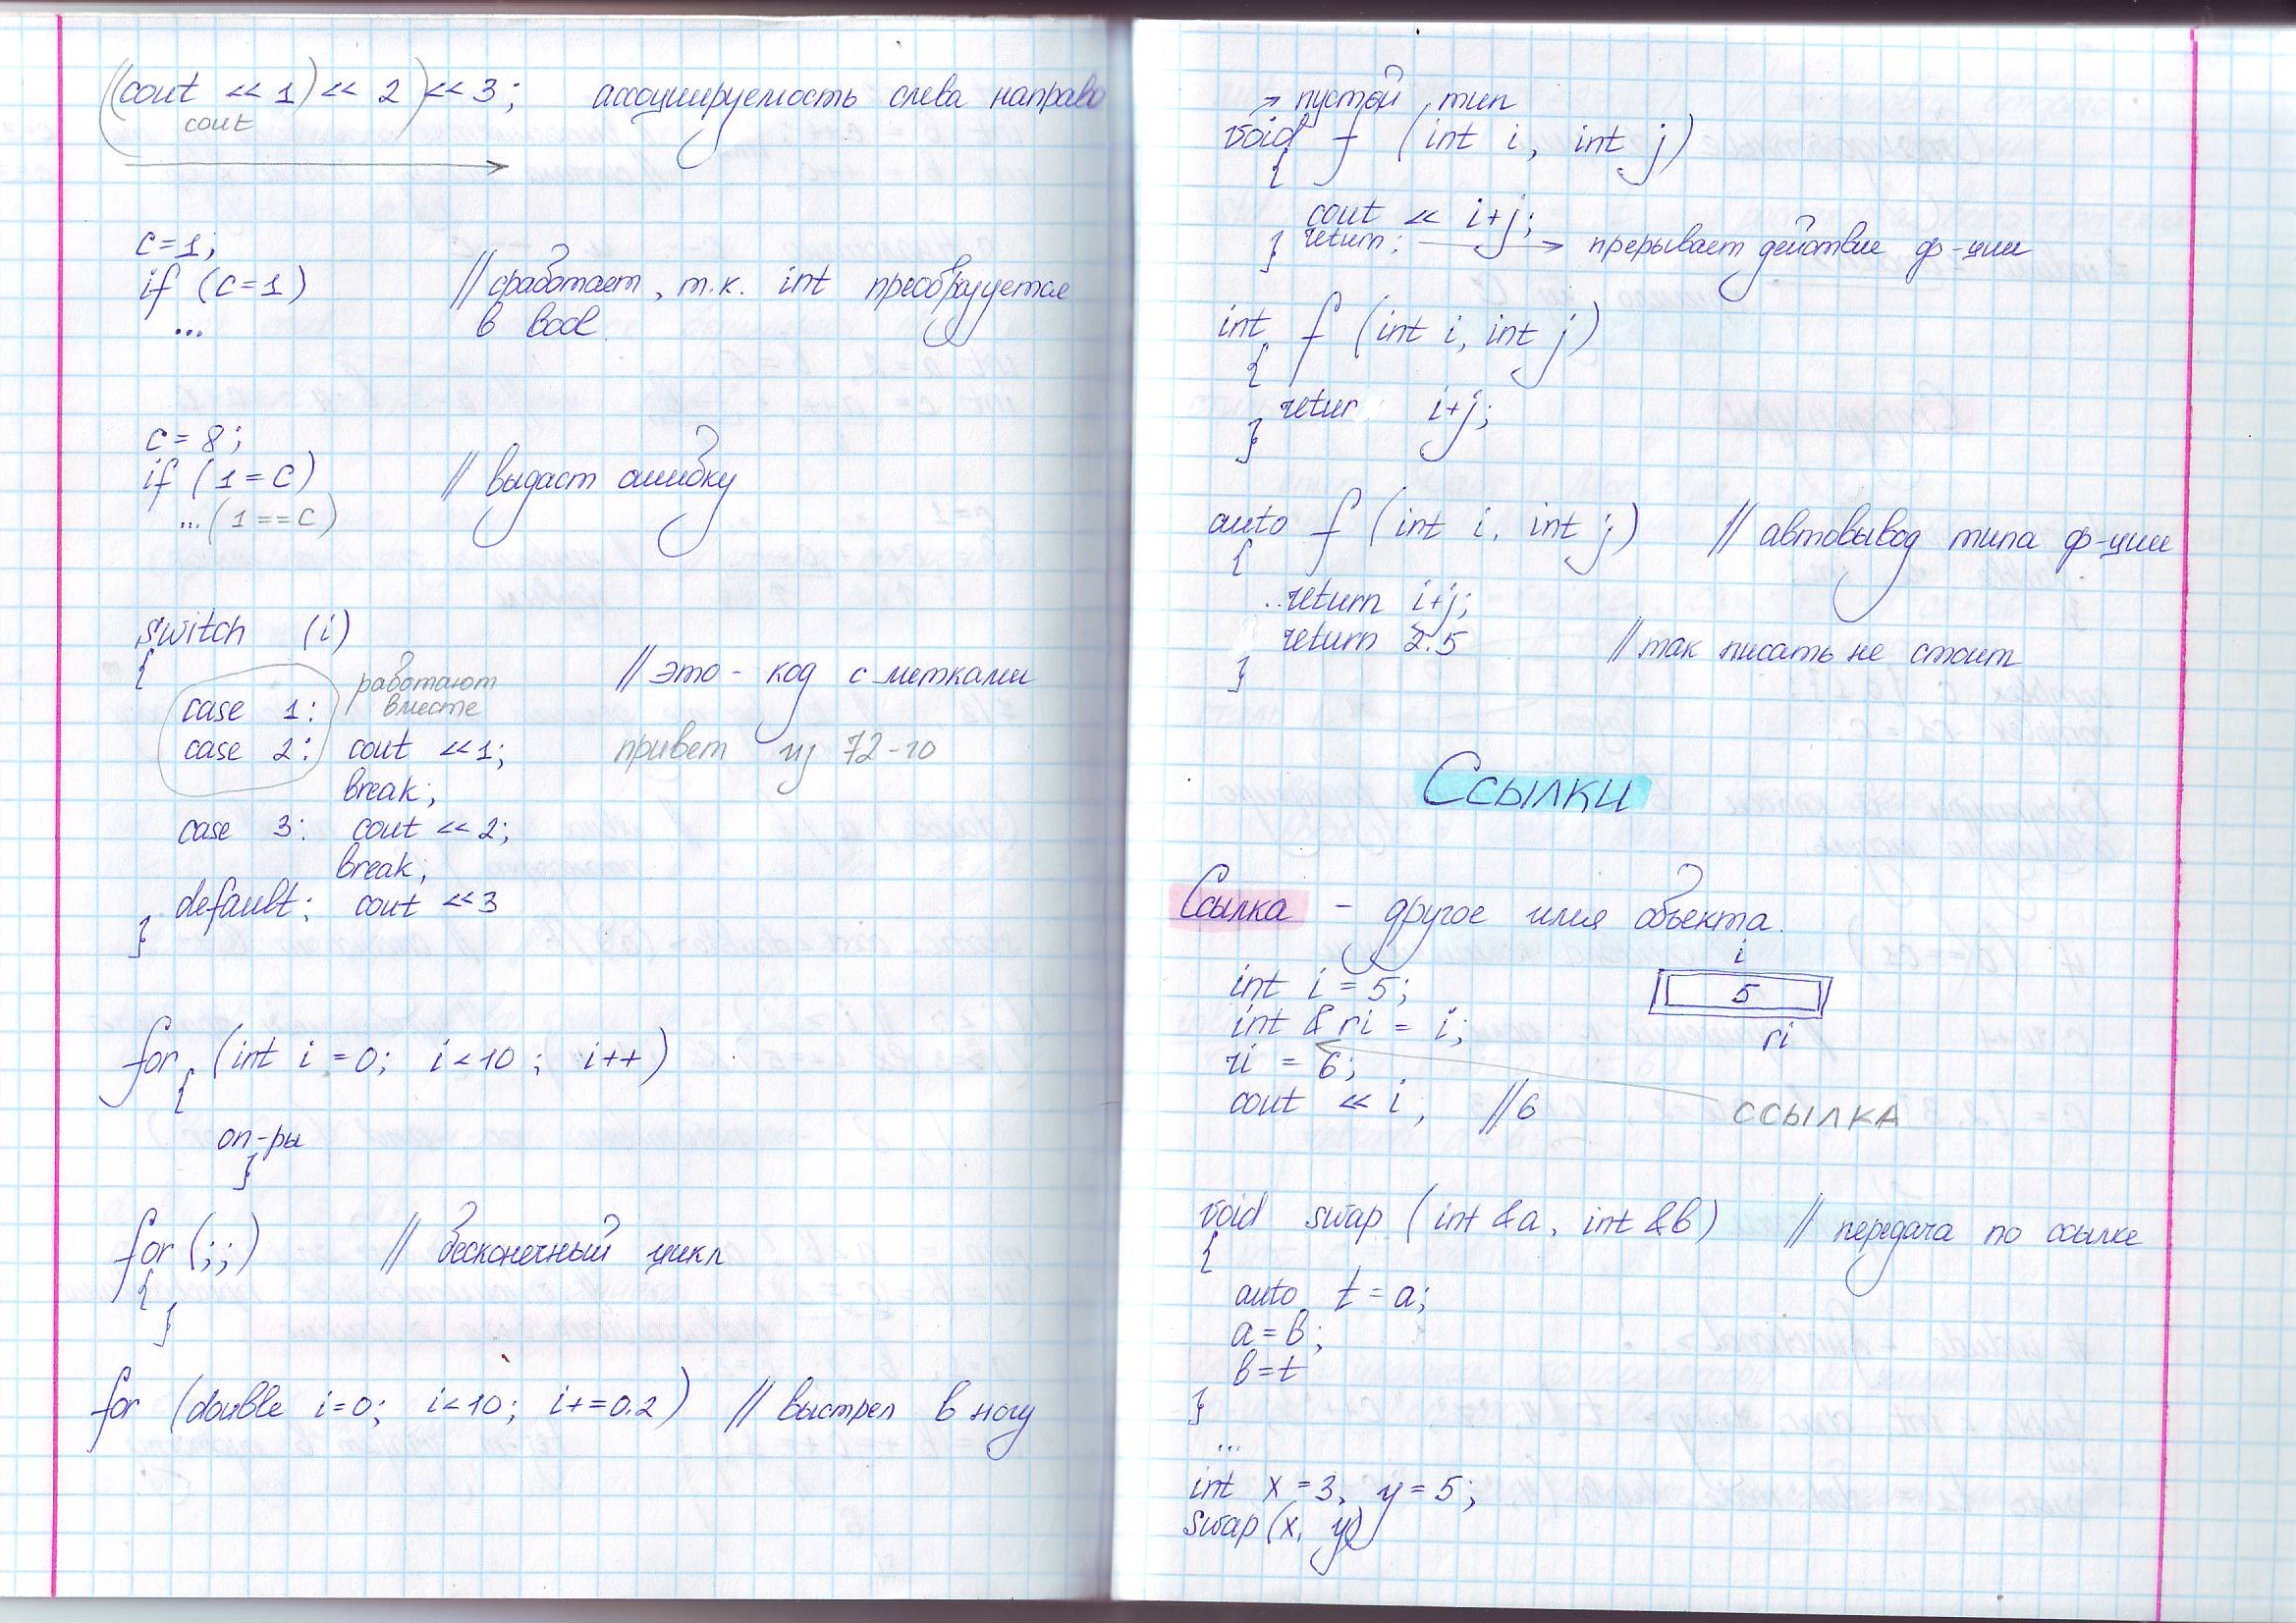 ((cout << 1) << 2) << 3; ассоциируемость слева направо
cout
c=1;
if (c=1) // сработает, т.к. int преобразуется
... в bool
c=8;
if (1=c) // выдаст ошибку
... (1==c)
switch (i)
{ // это - код с метками
case 1: работают вместе
case 2: cout <<1; привет из 72-10
break;
case 3: cout <<2;
break;
default: cout <<3
}
for (int i=0; i<10; i++)
{
оп-ры
}
for (;;) // бесконечный цикл
{
}
for (double i=0; i<10; i+=0.2) // выстрел в ногу
→ пустой тип
void f (int i, int j)
{
cout << i+j;
} return; → прерывает действие ф-ции
int f (int i, int j)
{
retur i+j;
}
auto f (int i, int j) // автовывод типа ф-ции
{
..return i+j;
return 2.5 // так писать не стоит
}
Ссылки
Ссылка - другое имя объекта.
i
int i = 5; 5
int & ri = i; ri
ri = 6;
cout << i; //6 ссылка
void swap (int &a, int &b) // передача по ссылке
{
auto t = a;
a=b;
b=t
}
...
int x=3, y=5;
swap(x, y)